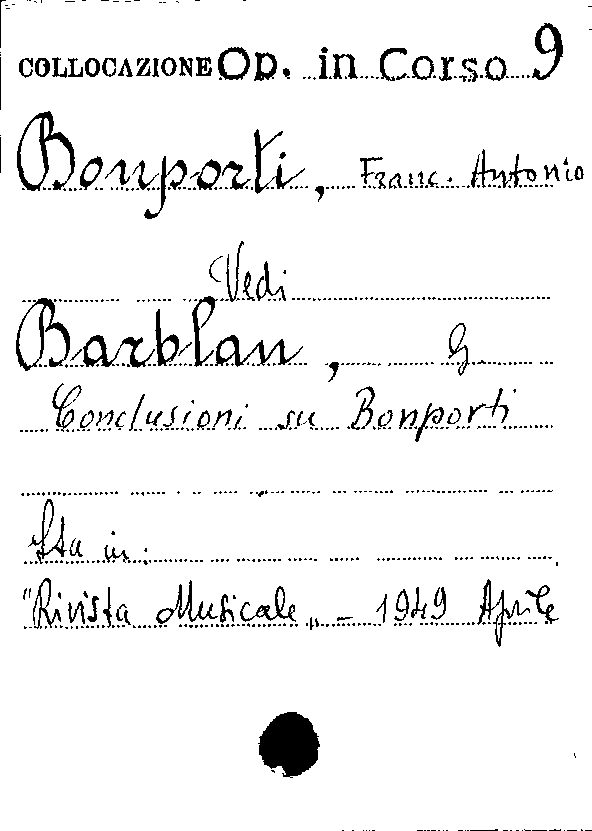 COLLOCAZIONE Op. in Corso 9
Bonporti, Franc. Antonio
Vedi
Barblan, G.
Conclusioni su Bonporti
Sta in:
"Rivista Musicale„ - 1949 Aprile